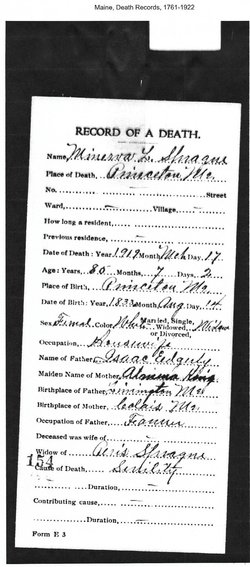 Maine, Death Records, 1761-1922
RECORD OF A DEATH.
Name, Minerva L. Sprague
Place of Death, Princeton Me.
No. — Street
Ward, — Village, —
How long a resident, —
Previous residence, —
Date of Death: Year, 1919 Month, Mch Day, 17
Age: Years, 80 Months, 7 Days, 2
Place of Birth, Princeton Me
Date of Birth: Year, Month, Aug Day, 14
Sex, Femal Color, White Married, Single, Widowed, or Divorced,
Occupation, Housewife
Name of Father, Isaac
Maiden Name of Mother, Almina King
Birthplace of Father, Me
Birthplace of Mother, Me
Occupation of Father, Farmer
Deceased was wife of —
Widow of Sprague
154
Cause of Death, Senility
Duration, —
Contributing cause, —
Duration, —
Form E 3